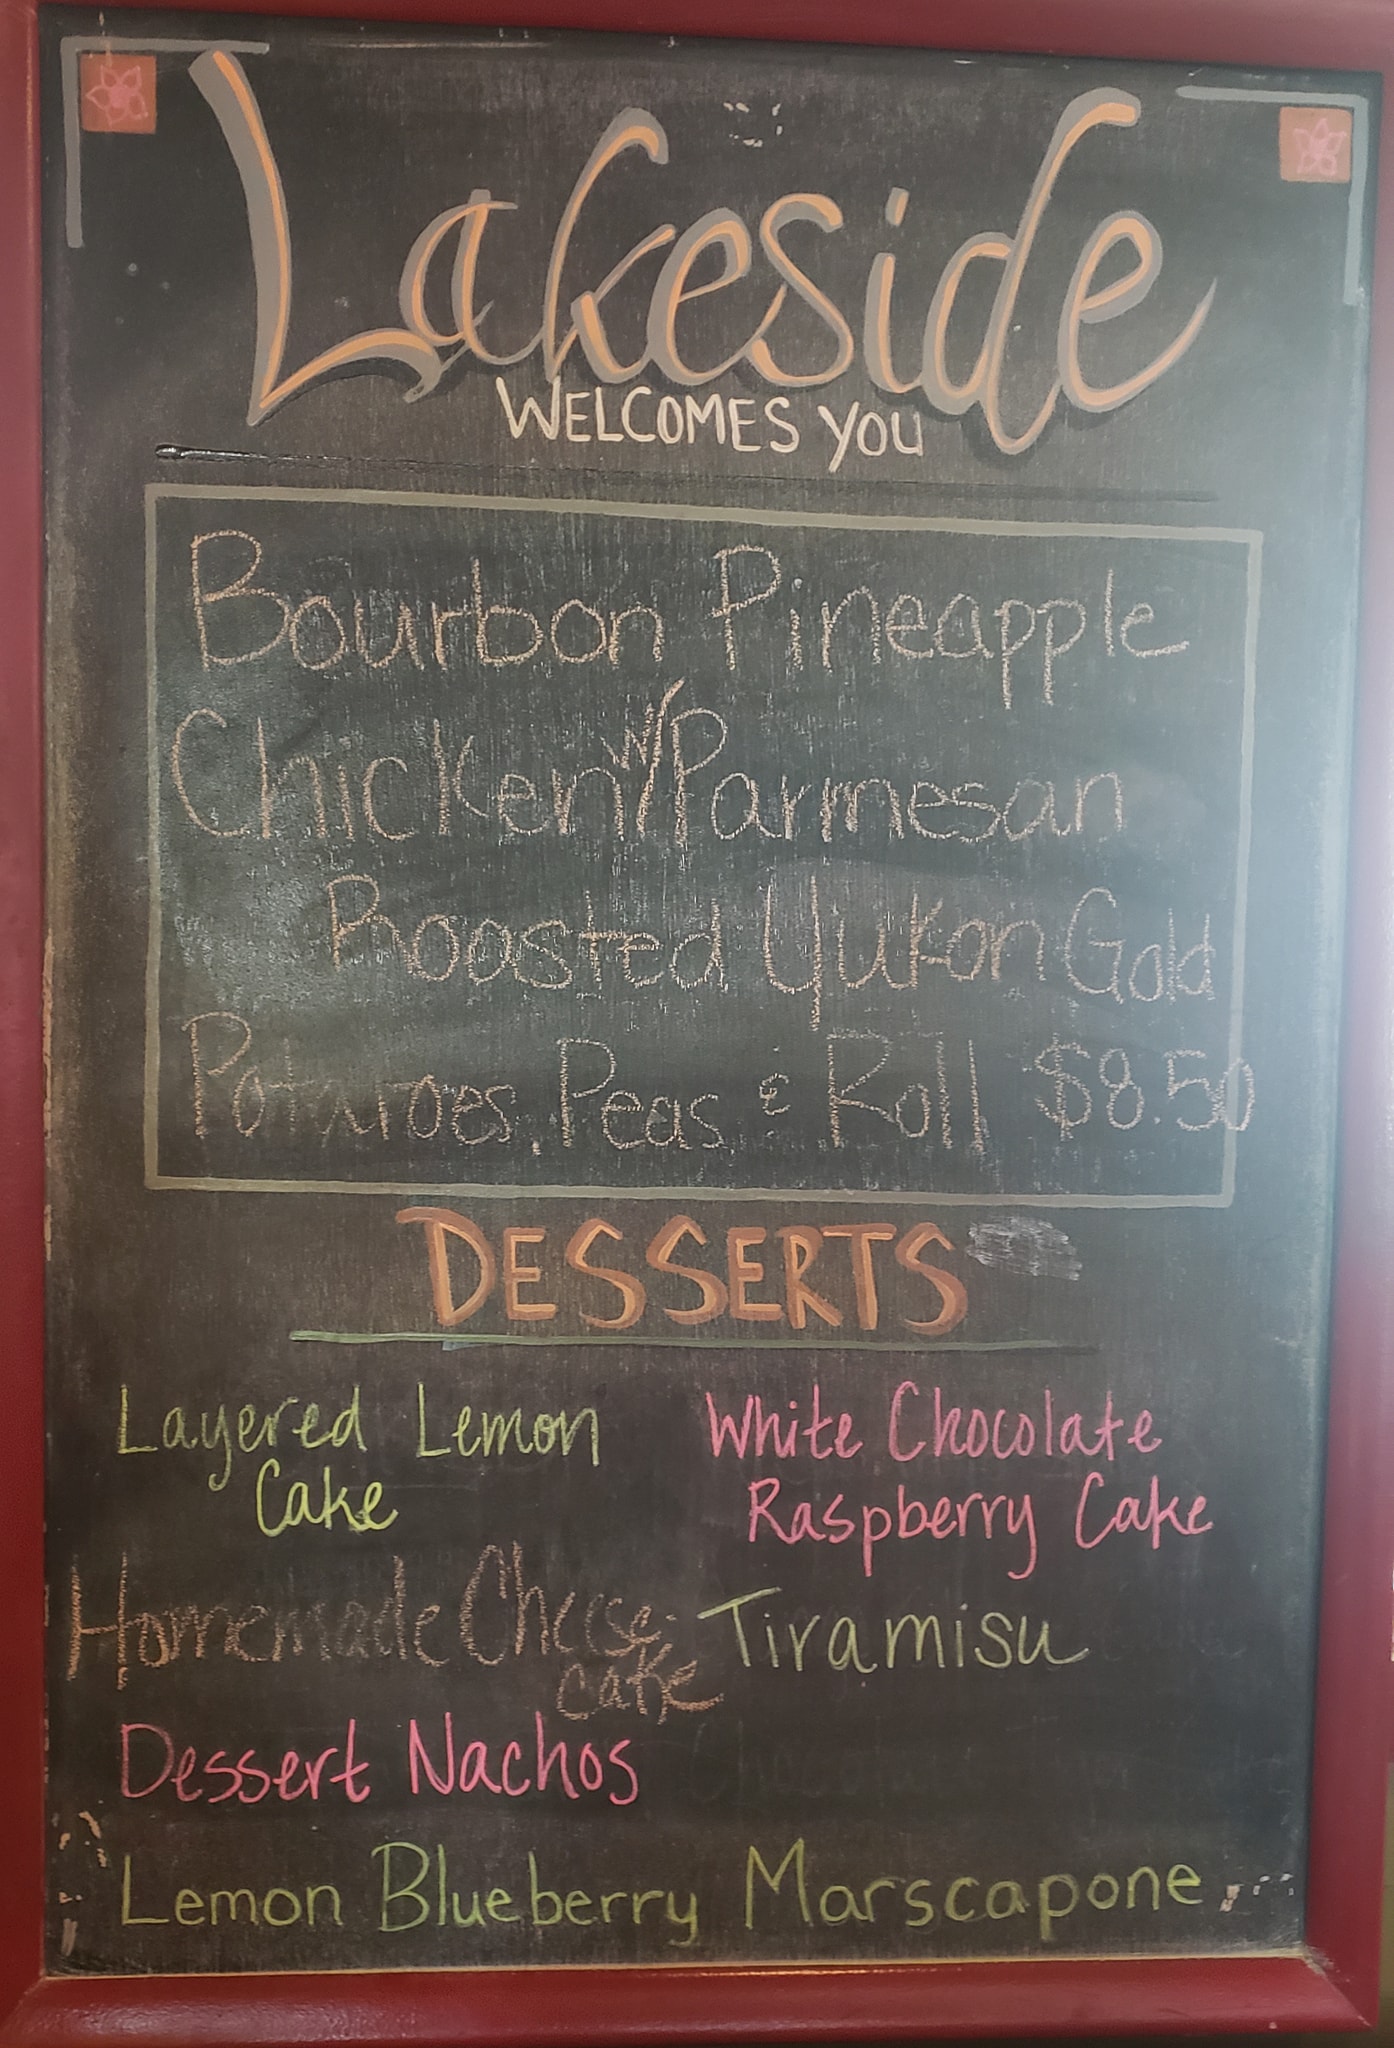 Lakeside
WELCOMES YOU
Bourbon Pineapple
Chicken w/Parmesan
Roasted Yukon Gold
Potatoes, Peas & Roll $8.50
DESSERTS
Layered Lemon
Cake
White Chocolate
Raspberry Cake
Homemade Cheese-
cake
Tiramisu
Dessert Nachos
Lemon Blueberry Marscapone